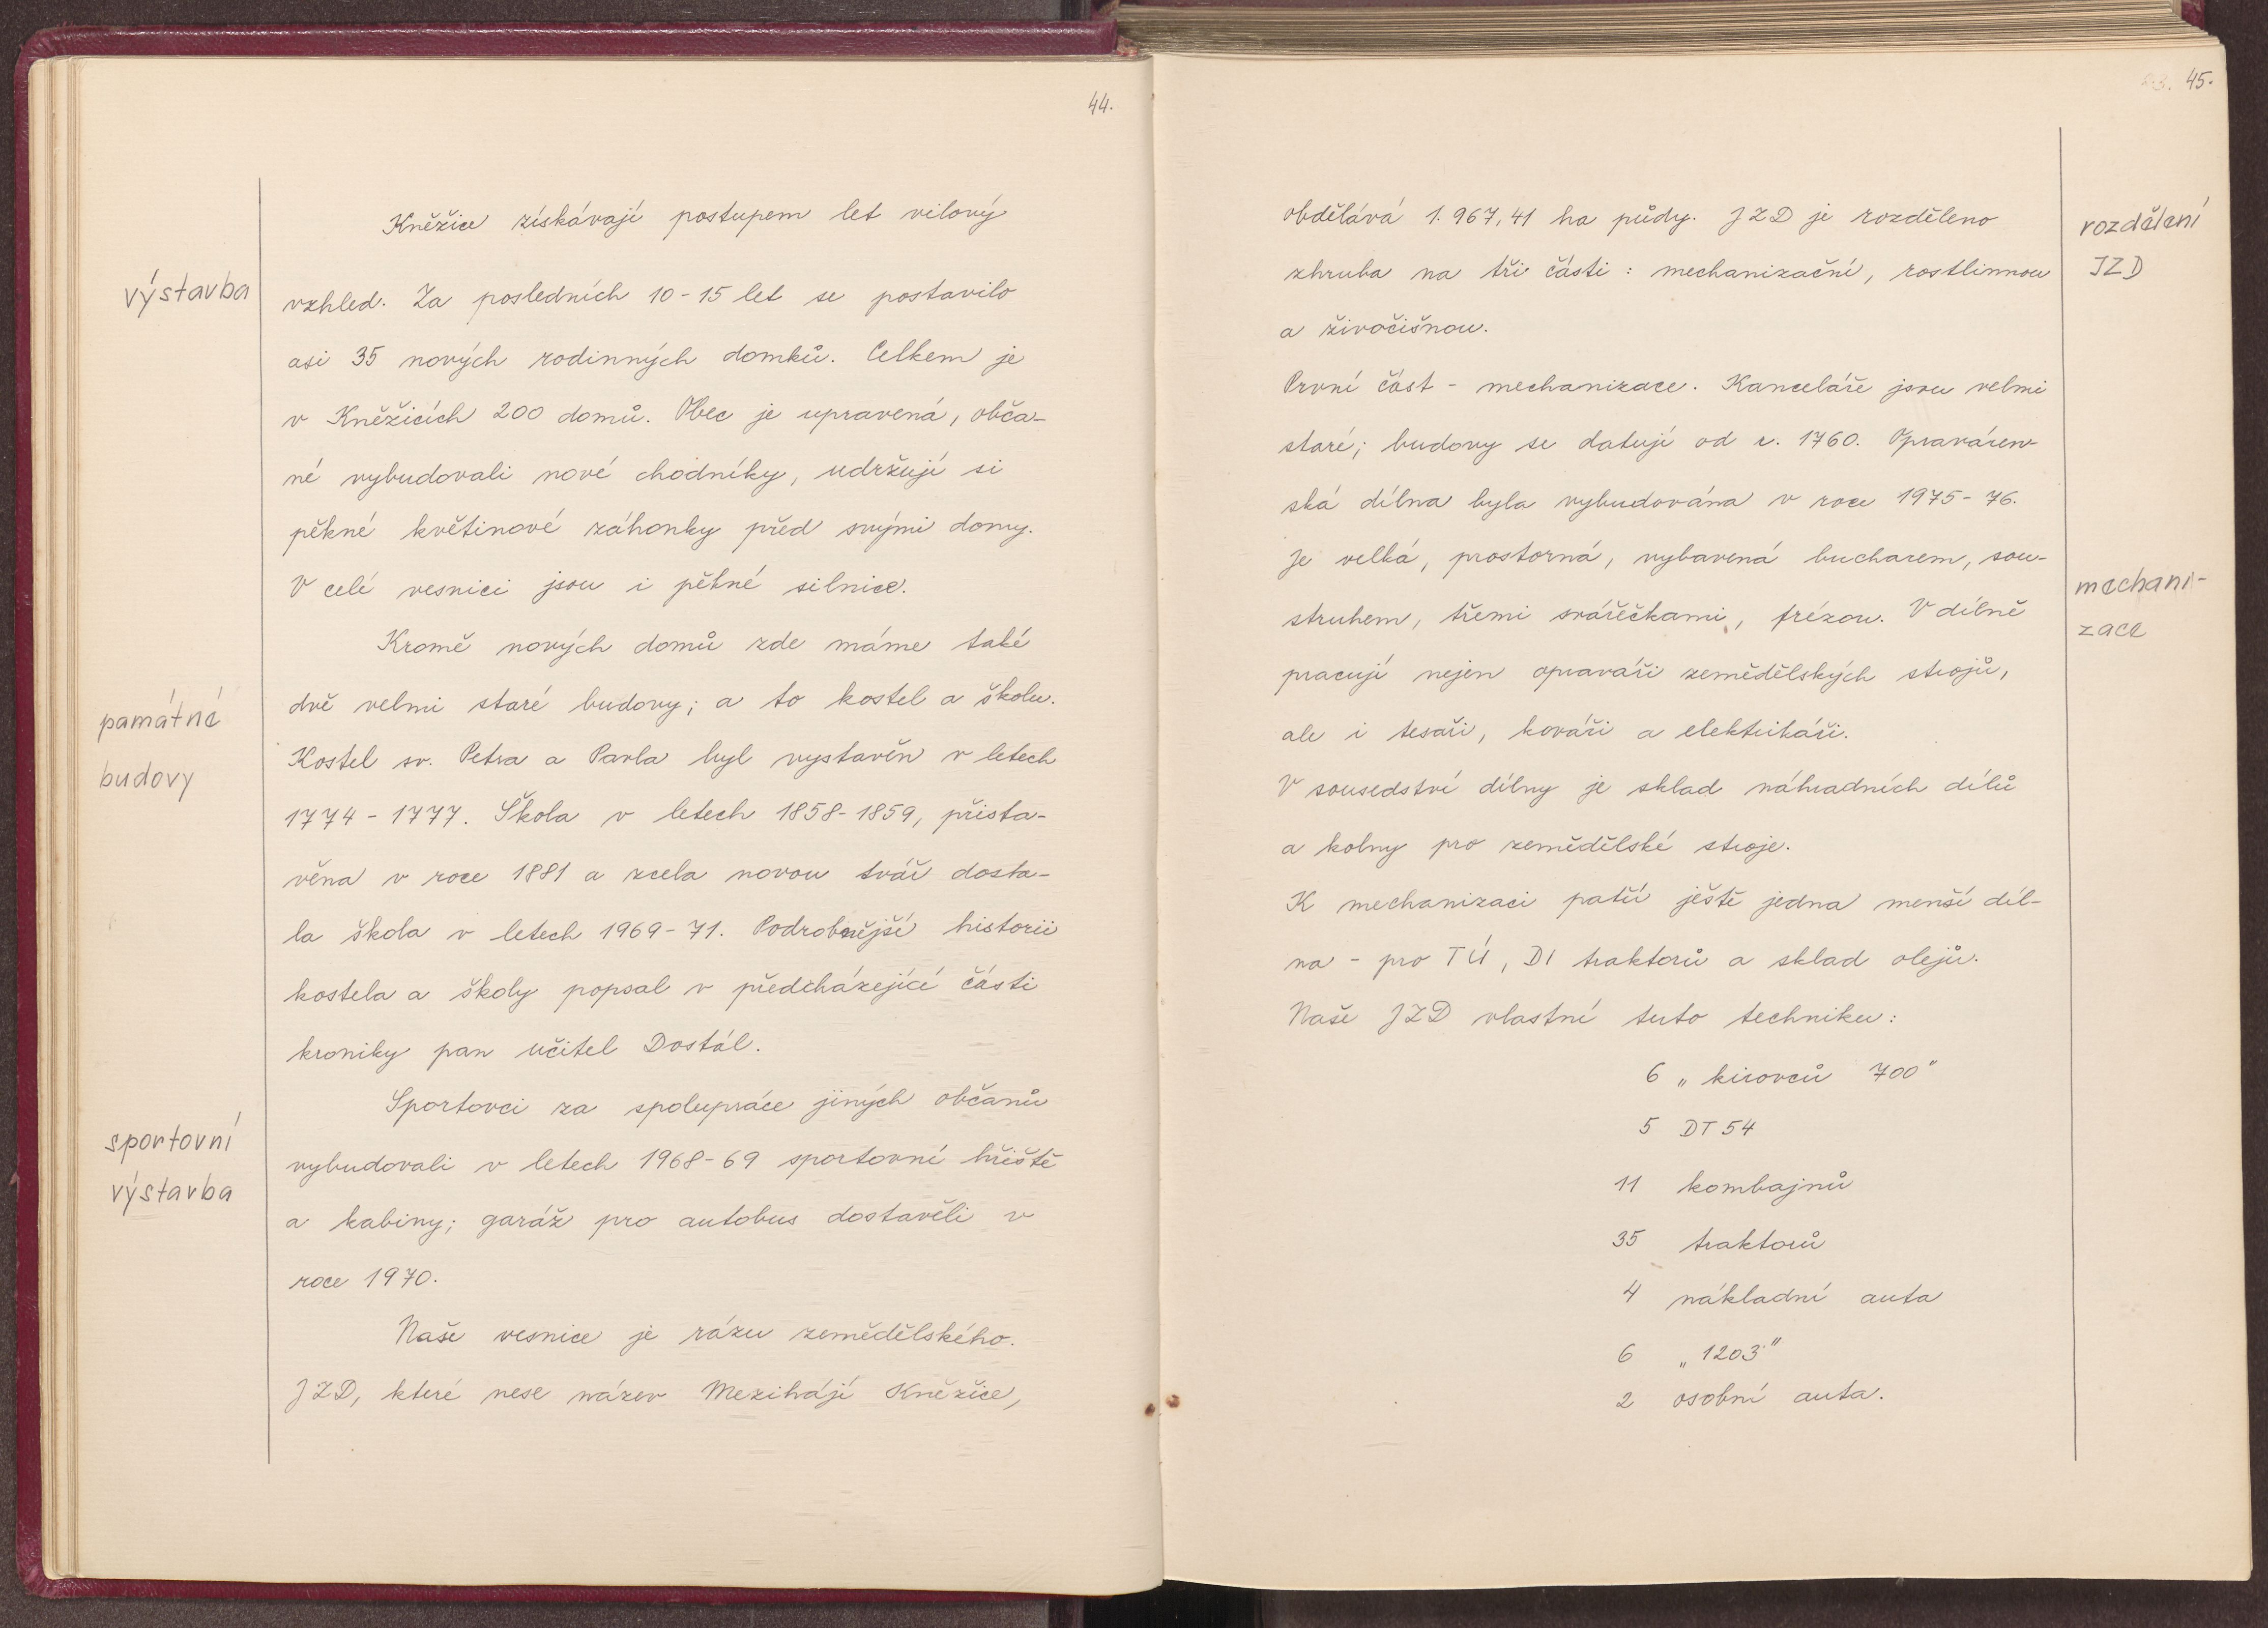 44.
Kněžice získávají postupem let vilový
výstavba
vzhled. Za posledních 10-15 let se postavilo
asi 35 nových rodinných domků. Celkem je
v Kněžicích 200 domů. Obec je upravená, obča-
né vybudovali nové chodníky, udržují si
pěkné květinové záhonky před svými domy.
V celé vesnici jsou i pěkné silnice.
Kromě nových domů zde máme také
památné
budovy
dvě velmi staré budovy; a to kostel a školu.
Kostel sv. Petra a Pavla byl vystavěn v letech
1774-1777. Škola v letech 1858-1859, přista-
věna v roce 1881 a zcela novou tvář dosta-
la škola v letech 1969-71. Podrobnější historii
kostela a školy popsal v předcházející části
kroniky pan učitel Dostál.
Sportovci za spolupráce jiných občanů
sportovní
výstavba
vybudovali v letech 1968-69 sportovní hřiště
a kabiny; garáž pro autobus dostavěli v
roce 1970.
Naše vesnice je rázu zemědělského.
JZD, které nese název Mezihájí Kněžice,
45.
obdělává 1.967,41 ha půdy. JZD je rozděleno
rozdělení
JZD
zhruba na tři části: mechanizační, rostlinnou
a živočišnou.
První část - mechanizace. Kanceláře jsou velmi
staré; budovy se datují od r. 1760. Opraváren-
ská dílna byla vybudována v roce 1975-76.
Je velká, prostorná, vybavená bucharem, sou-
mechani-
zace
struhem, třemi svářečkami, frézou. V dílně
pracují nejen opraváři zemědělských strojů,
ale i tesaři, kováři a elektrikáři.
V sousedství dílny je sklad náhradních dílů
a kolny pro zemědělské stroje.
K mechanizaci patří ještě jedna menší díl-
na - pro TÚ, DI traktorů a sklad olejů.
Naše JZD vlastní tuto techniku:
6 „kirovců 700"
5 DT 54
11 kombajnů
35 traktorů
4 nákladní auta
6 „1203"
2 osobní auta.